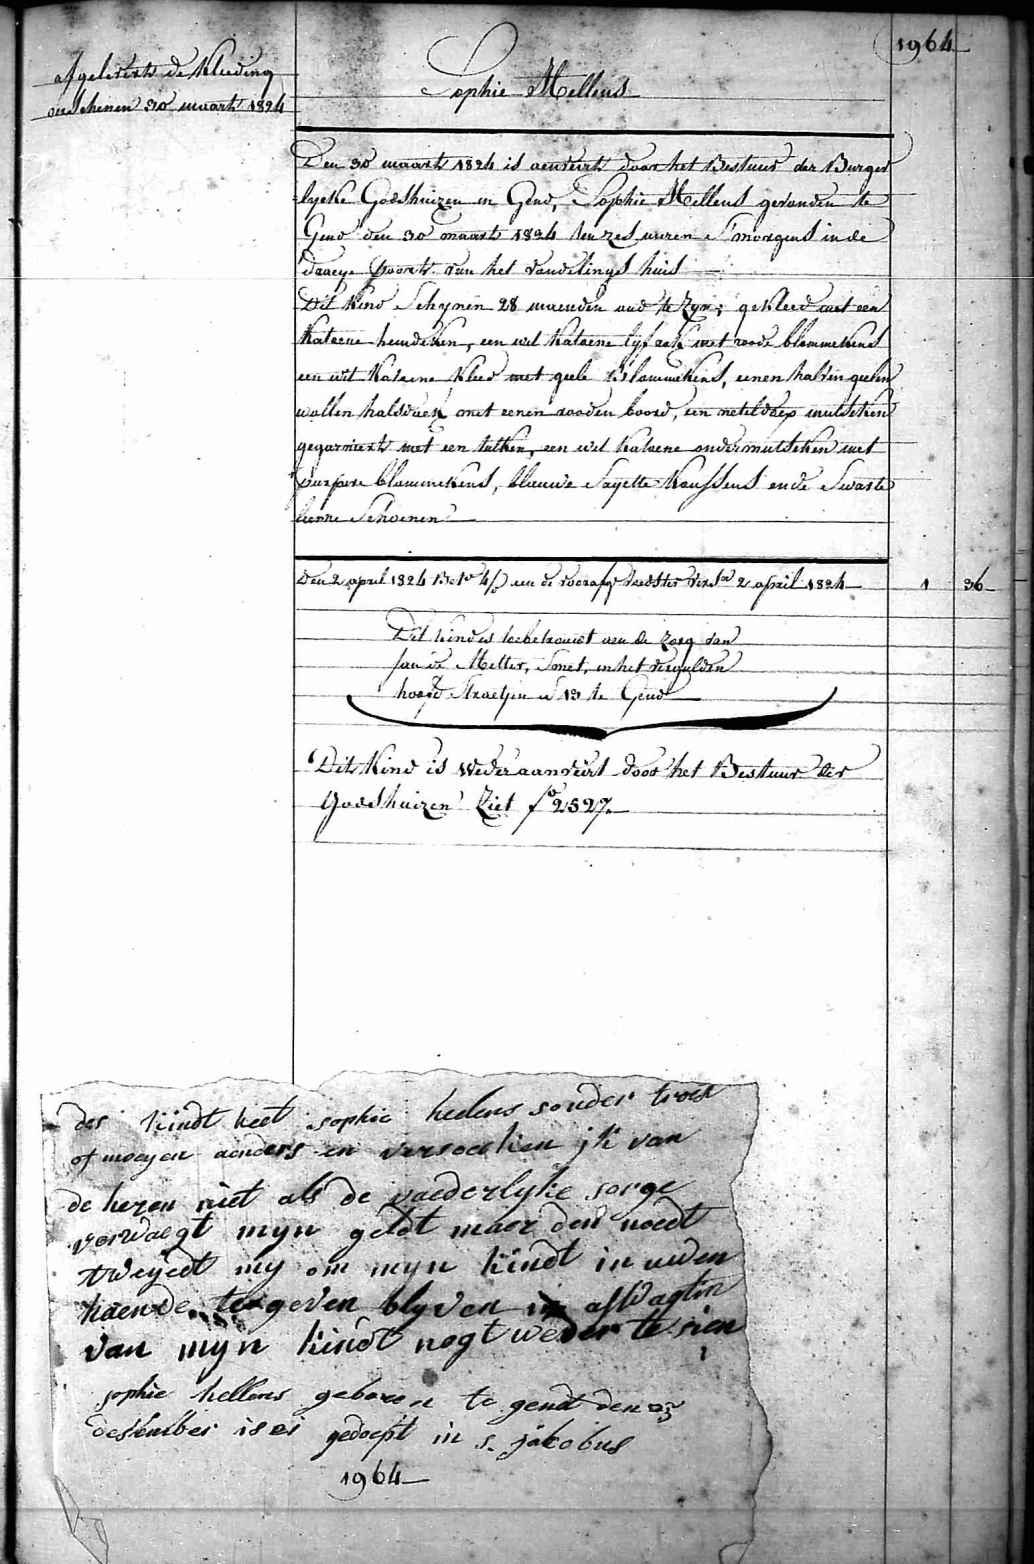 1964
afgelevert de kleeding
en schoenen 30 maart 1824
Sophie Hellens
Den 30 maart 1824 is aenveirt door het Bestuur der Burger
lyeke Godshuizen in Gend, Sophie Hellens gevonden te
Gend den 30 maart 1824 ten zes uuren S'morgens in de
draeye poort van het vondelings huis
Dit kind Schynen 28 maenden oud te zyn; gekleed met een
katoene hemdeken, een wit katoene lyf rok met roode blommekens
een wit katoene kleed met geele blommekens, eenen halven geelen
wollen halsdoek met eenen rooden boord, een neteldoex mutseken
gegarniert met een tulken, een wit katoene ondermutseken met
purpere blommekens, blauwe Sayette Kaussens en de Swarte
leerne Schoenen
Den 2 april 1824 aen de voedster 2 april 1824 1 36
Dit kind is toebetrouwt aen de zorg van
Jan de Metter, Smet, in het vergulden
hoofd Straetjen N 13 te Gend
Dit Kind is Wederaanveirt door het Bestuur der
Godshuizen Ziet fo 2527.
des kindt heet sophie hellens sonder troost
of moeyen aenders en versoecken jk van
de heren niet als de vaederlyke sorge
verwaegt myn geldt maer den noedt
tweyedt my om myn kindt in uwen
haende te geven blyven in afwagten
van myn kindt nogt weder te sien
sophie hellens geboren te gendt den 23
desember 1821 gedoept in s. jakobus
1964